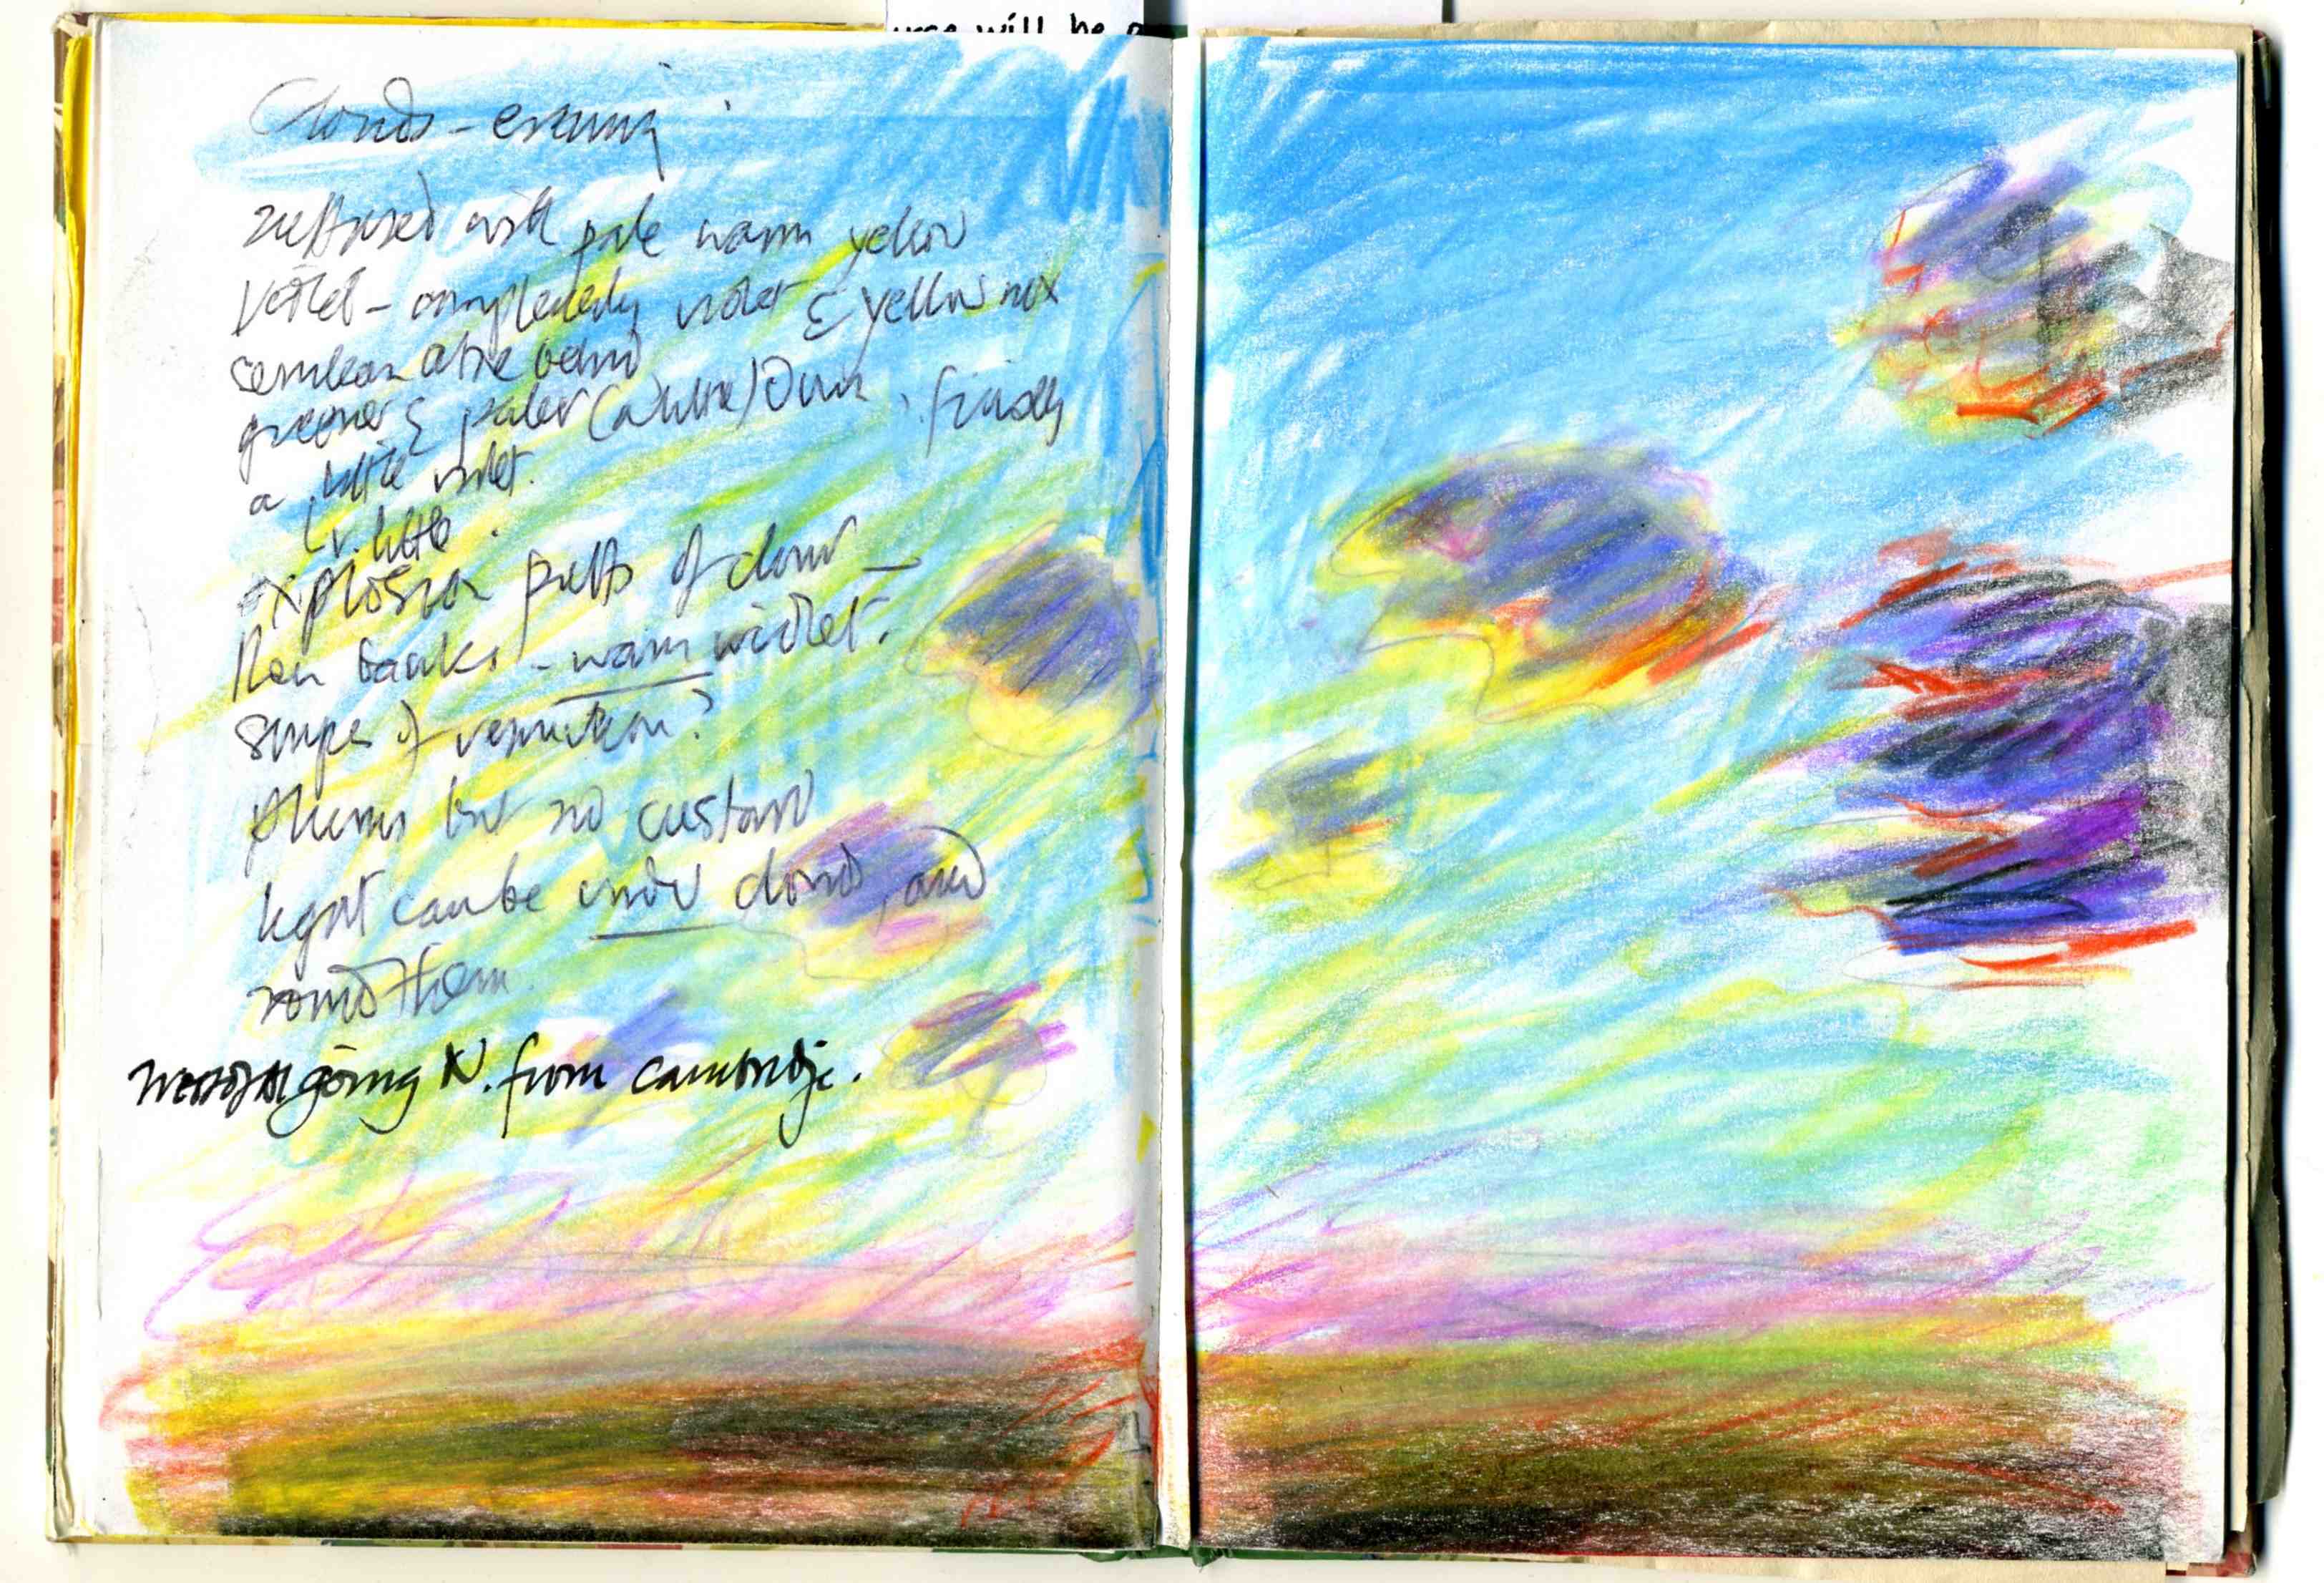 urse will be
Clouds - evening
suffused with pale warm yellow
Violet - completely violet & yellow mix
cerulean above behind
greener & paler (a little) Down, finally
a little violet.
(v. little.
explosion puffs of cloud -
then banks - warm violet.
stripes of vermilion?
plums but no custard
light can be under clouds, and
round them.
going N. from Cambridge.